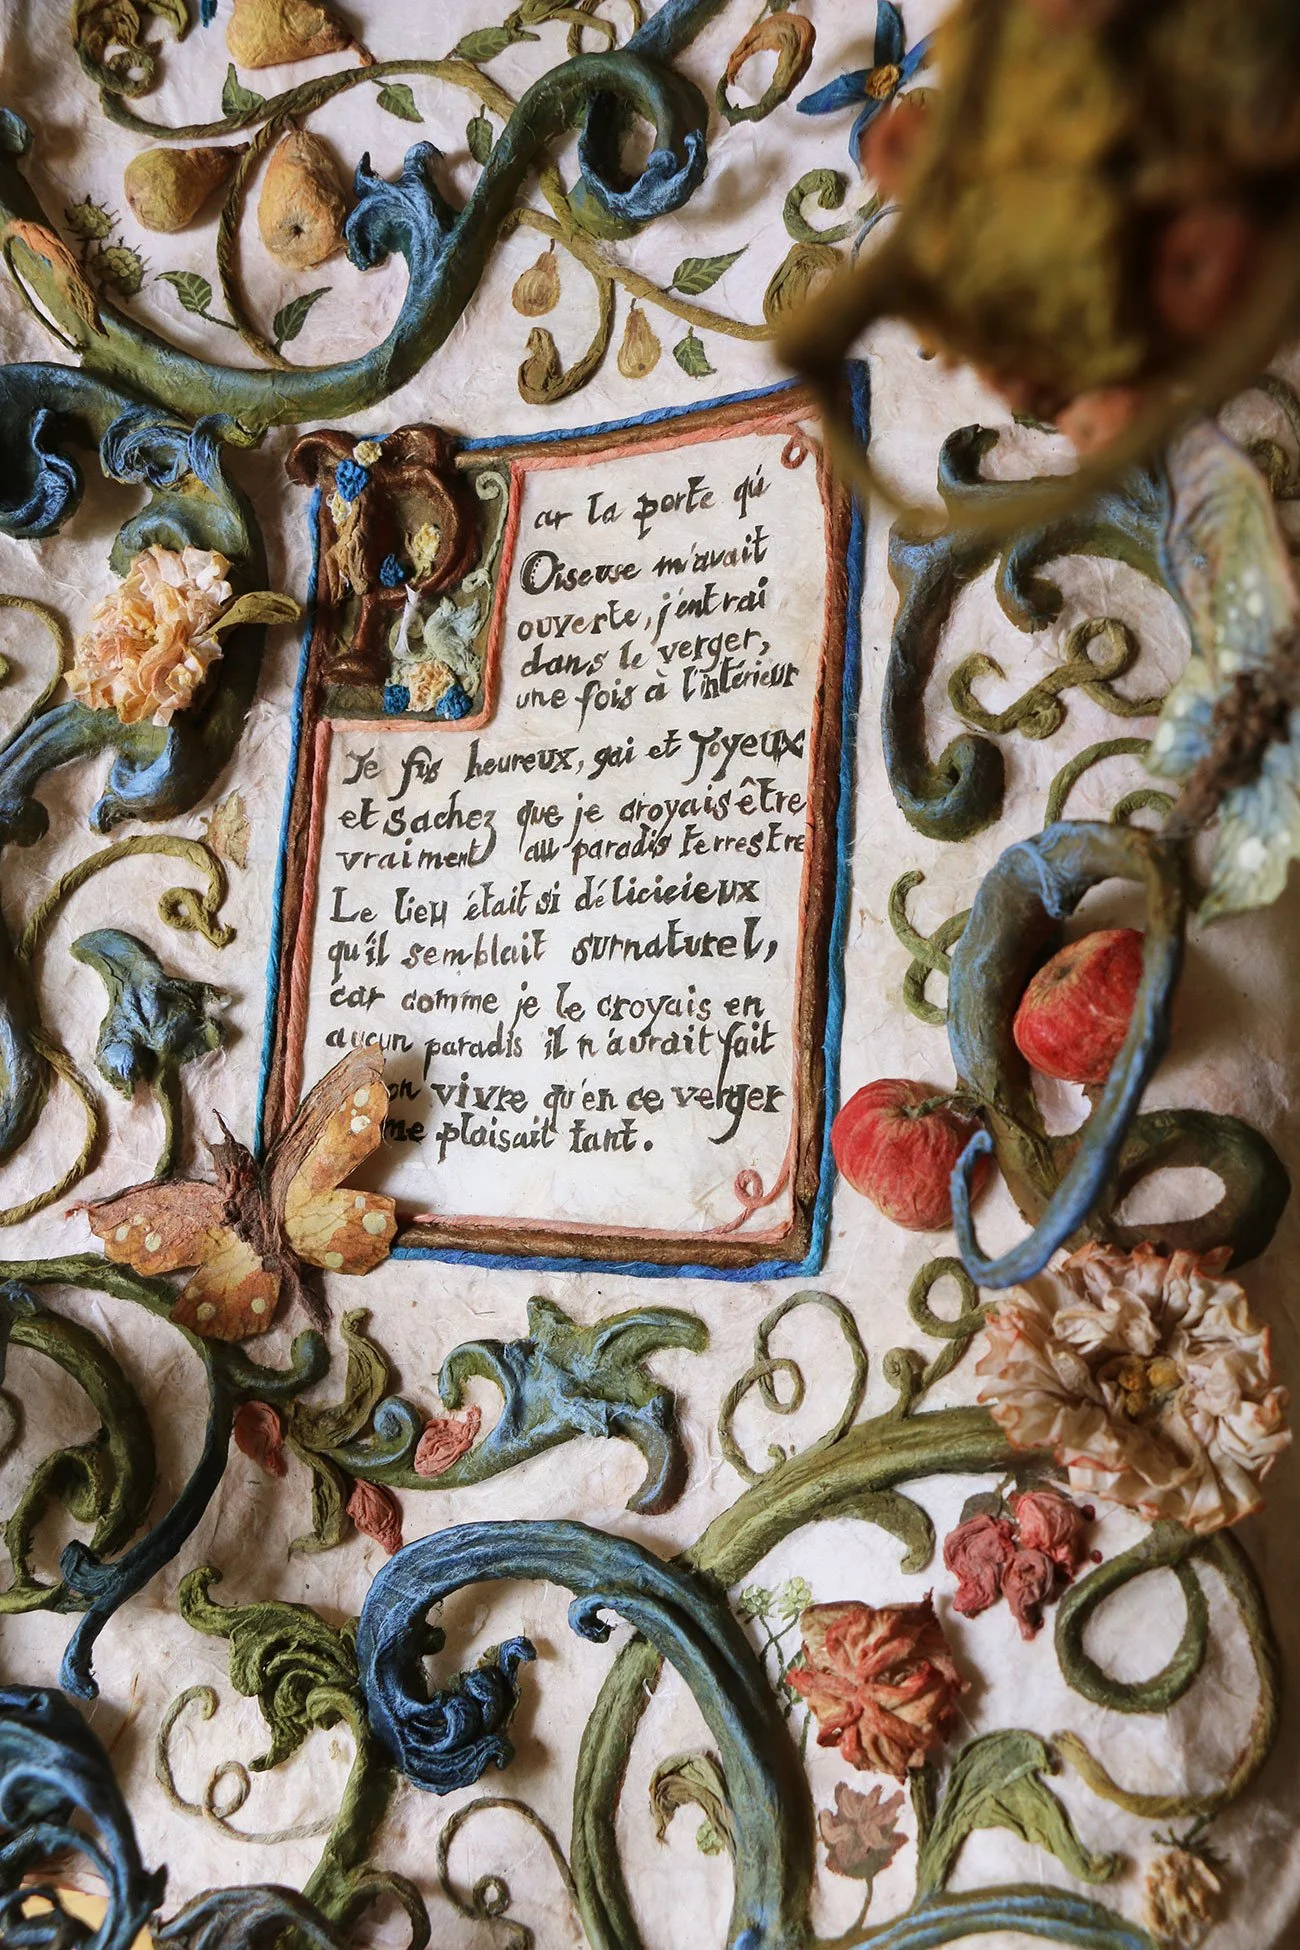 Par la porte qu'
Oiseuse m'avait
ouverte, j'entrai
dans le verger,
une fois à l'intérieur
Je fus heureux, gai et Joyeux
et sachez que je croyais être
vraiment au paradis terrestre
Le lieu était si déliciieux
qu'il semblait surnaturel,
car comme je le croyais en
aucun paradis il n'aurait fait
on vivre qu'en ce verger
me plaisait tant.